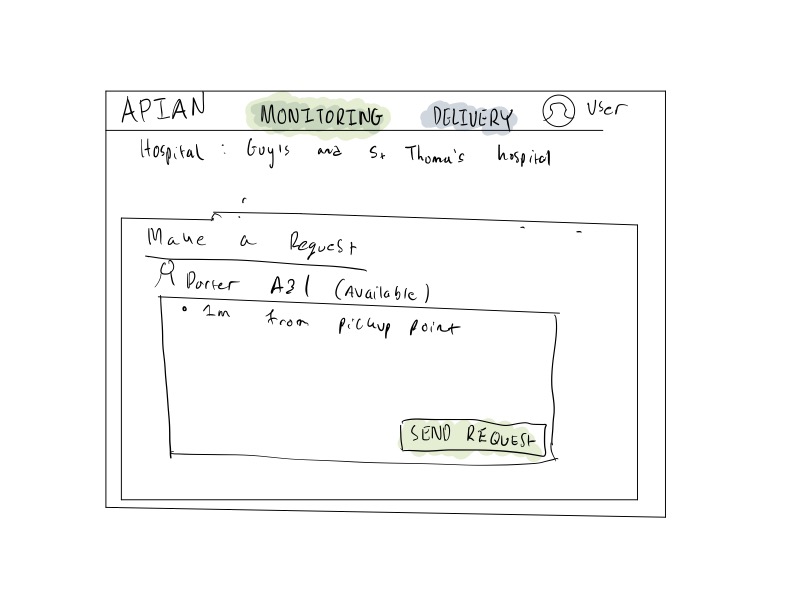 APIAN MONITORING DELIVERY User
Hospital : Guy's and St Thoma's hospital
Make a Request
Porter A31 (Available)
• 1m from pickup point
SEND REQUEST